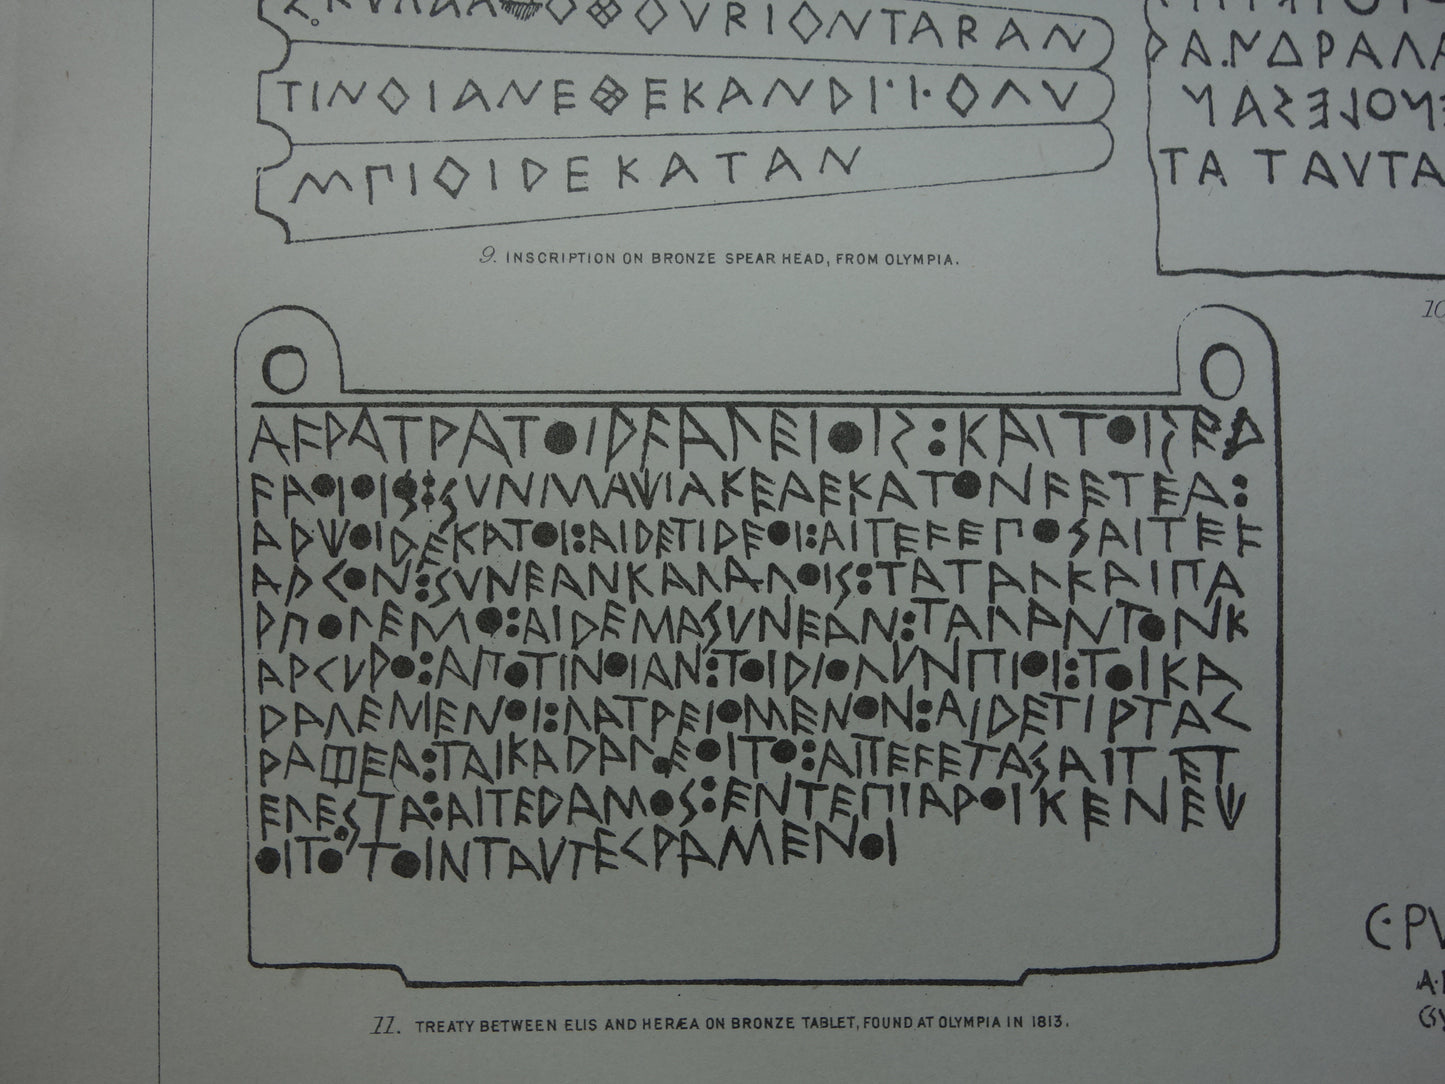 ΘΟΥΡΙΟΝΤΑΡΑΝ
ΤΙΝΟΙΑΝΕΘΕΚΑΝΔΙ·Ι·ΟΛΥ
ΜΠΙΟΙΔΕΚΑΤΑΝ
9. INSCRIPTION ON BRONZE SPEAR HEAD, FROM OLYMPIA.
ΤΑ ΤΑΥΤΑ
10
ΑϜΡΑΤΡΑΤΟΙΡϜΑΛΕΙΟΙΣ:ΚΑΙΤΟΙΣΕΡ
ϜΑΟΙΟΙΣ:ΣΥΝΜΑΨΙΑΚΕΑΕΚΑΤΟΝϜΕΤΕΑ:
ΑΡΨΟΙΔΕΚΑΤΟΙ:ΑΙΔΕΤΙΔΕΟΙ:ΑΙΤΕϜΕΠΟΣΑΙΤΕϜ
ΑΡΓΟΝ:ΣΥΝΕΑΝΚΑΛΑΛΟΙΣ:ΤΑΤΑΛΚΑΙΠΑ
ΡΠΟΛΕΜΟ:ΑΙΔΕΜΑΣΥΝΕΑΝ:ΤΑΛΑΝΤΟΝΚ
ΑΡΓΥΡΟ:ΑΠΟΤΙΝΟΙΑΝ:ΤΟΙΔΙΟΛΥΝΠΙΟΙ:ΤΟΙΚΑ
ΔΑΛΕΜΕΝΟΙ:ΛΑΤΡΕΙΟΜΕΝΟΝ:ΑΙΔΕΤΙΡΤΑΓ
ΡΑΦΕΑ:ΤΑΙΚΑΔΑΛΕΟΙΤΟ:ΑΙΤΕϜΕΤΑΣΑΙΤΕΤ
ΕΛΕΣΤΑ:ΑΙΤΕΔΑΜΟΣ:ΕΝΤΕΠΙΑΡΟΙΚΕΝΕΨ
ΟΙΤΟ:ΤΟΙΝΤΑΥΤΕΓΡΑΜΕΝΟΙ
11. TREATY BETWEEN ELIS AND HERÆA ON BRONZE TABLET, FOUND AT OLYMPIA IN 1813.